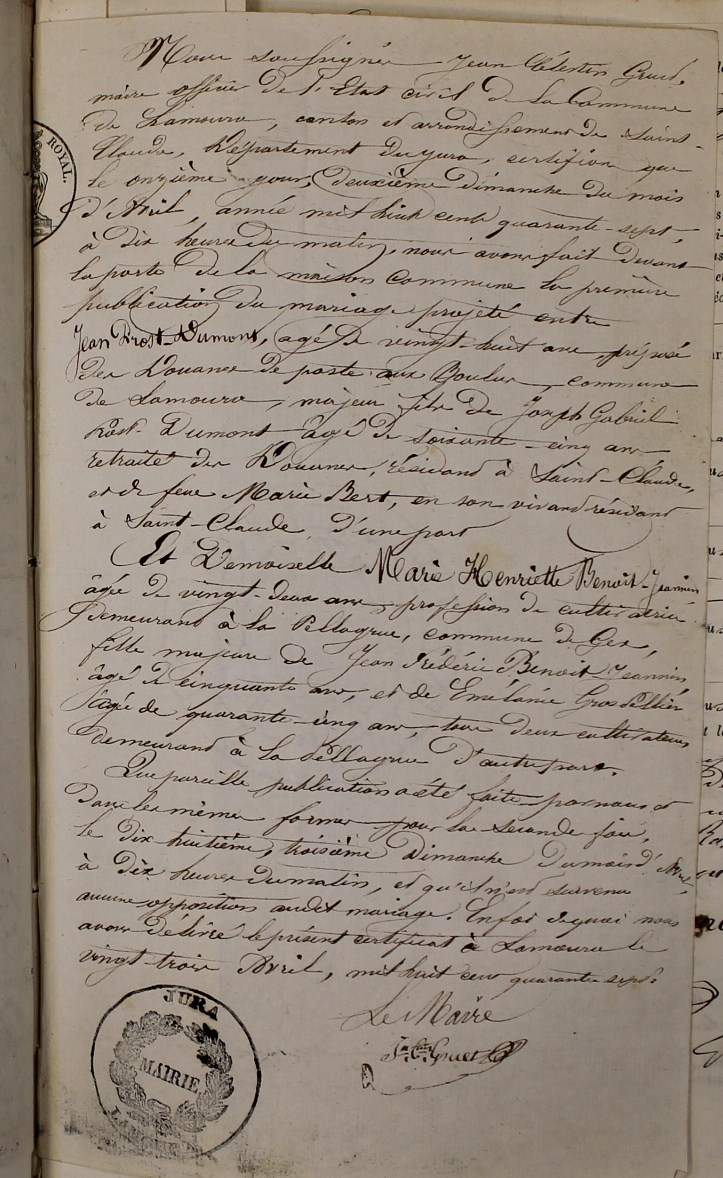 Nous soussigné Jean Célestin Gruet,
maire officier de l'Etat civil de la Commune
de Lamoura, canton et arrondissement de Saint-
Claude, Département du Jura, certifions que
le onzième jour, deuxième dimanche du mois
d'Avril, année mil huit cent quarante-sept,
à dix heures du matin, nous avons fait devant
la porte de la maison commune la première
publication du mariage projeté entre
Jean Prost-Dumont, agé de vingt-huit ans, préposé
des Douanes de poste aux Boulus, commune
de Lamoura, majeur, fils de Joseph Gabriel
Prost-Dumont âgé de soixante-cinq ans
retraité des Douanes, résidant à Saint-Claude,
et de feue Marie Bert, en son vivant résidant
à Saint-Claude, d'une part
Et Demoiselle Marie Henriette Benoit-Jeannin
âgée de vingt-deux ans, profession de cultivatrice
demeurant à la Pellagrue, commune de Gex,
fille majeure de Jean Frédéric Benoit-Jeannin,
âgé de cinquante ans, et de Emélanie Gros Pellier
âgée de quarante-cinq ans, tous deux cultivateurs
demeurant à la Pellagrue d'autre part.
Que pareille publication a été faite par nous et
dans les mêmes formes pour la seconde fois,
le dix huitième, troisième Dimanche du mois d'Avril,
à dix heures du matin, et qu'il n'est survenu
aucune opposition audit mariage. En foi de quoi nous
avons délivré le présent certificat à Lamoura le
vingt-trois Avril, mil huit cent quarante-sept.
Le Maire
Jn Ctin Gruet
ROYAL.
JURA
MAIRIE